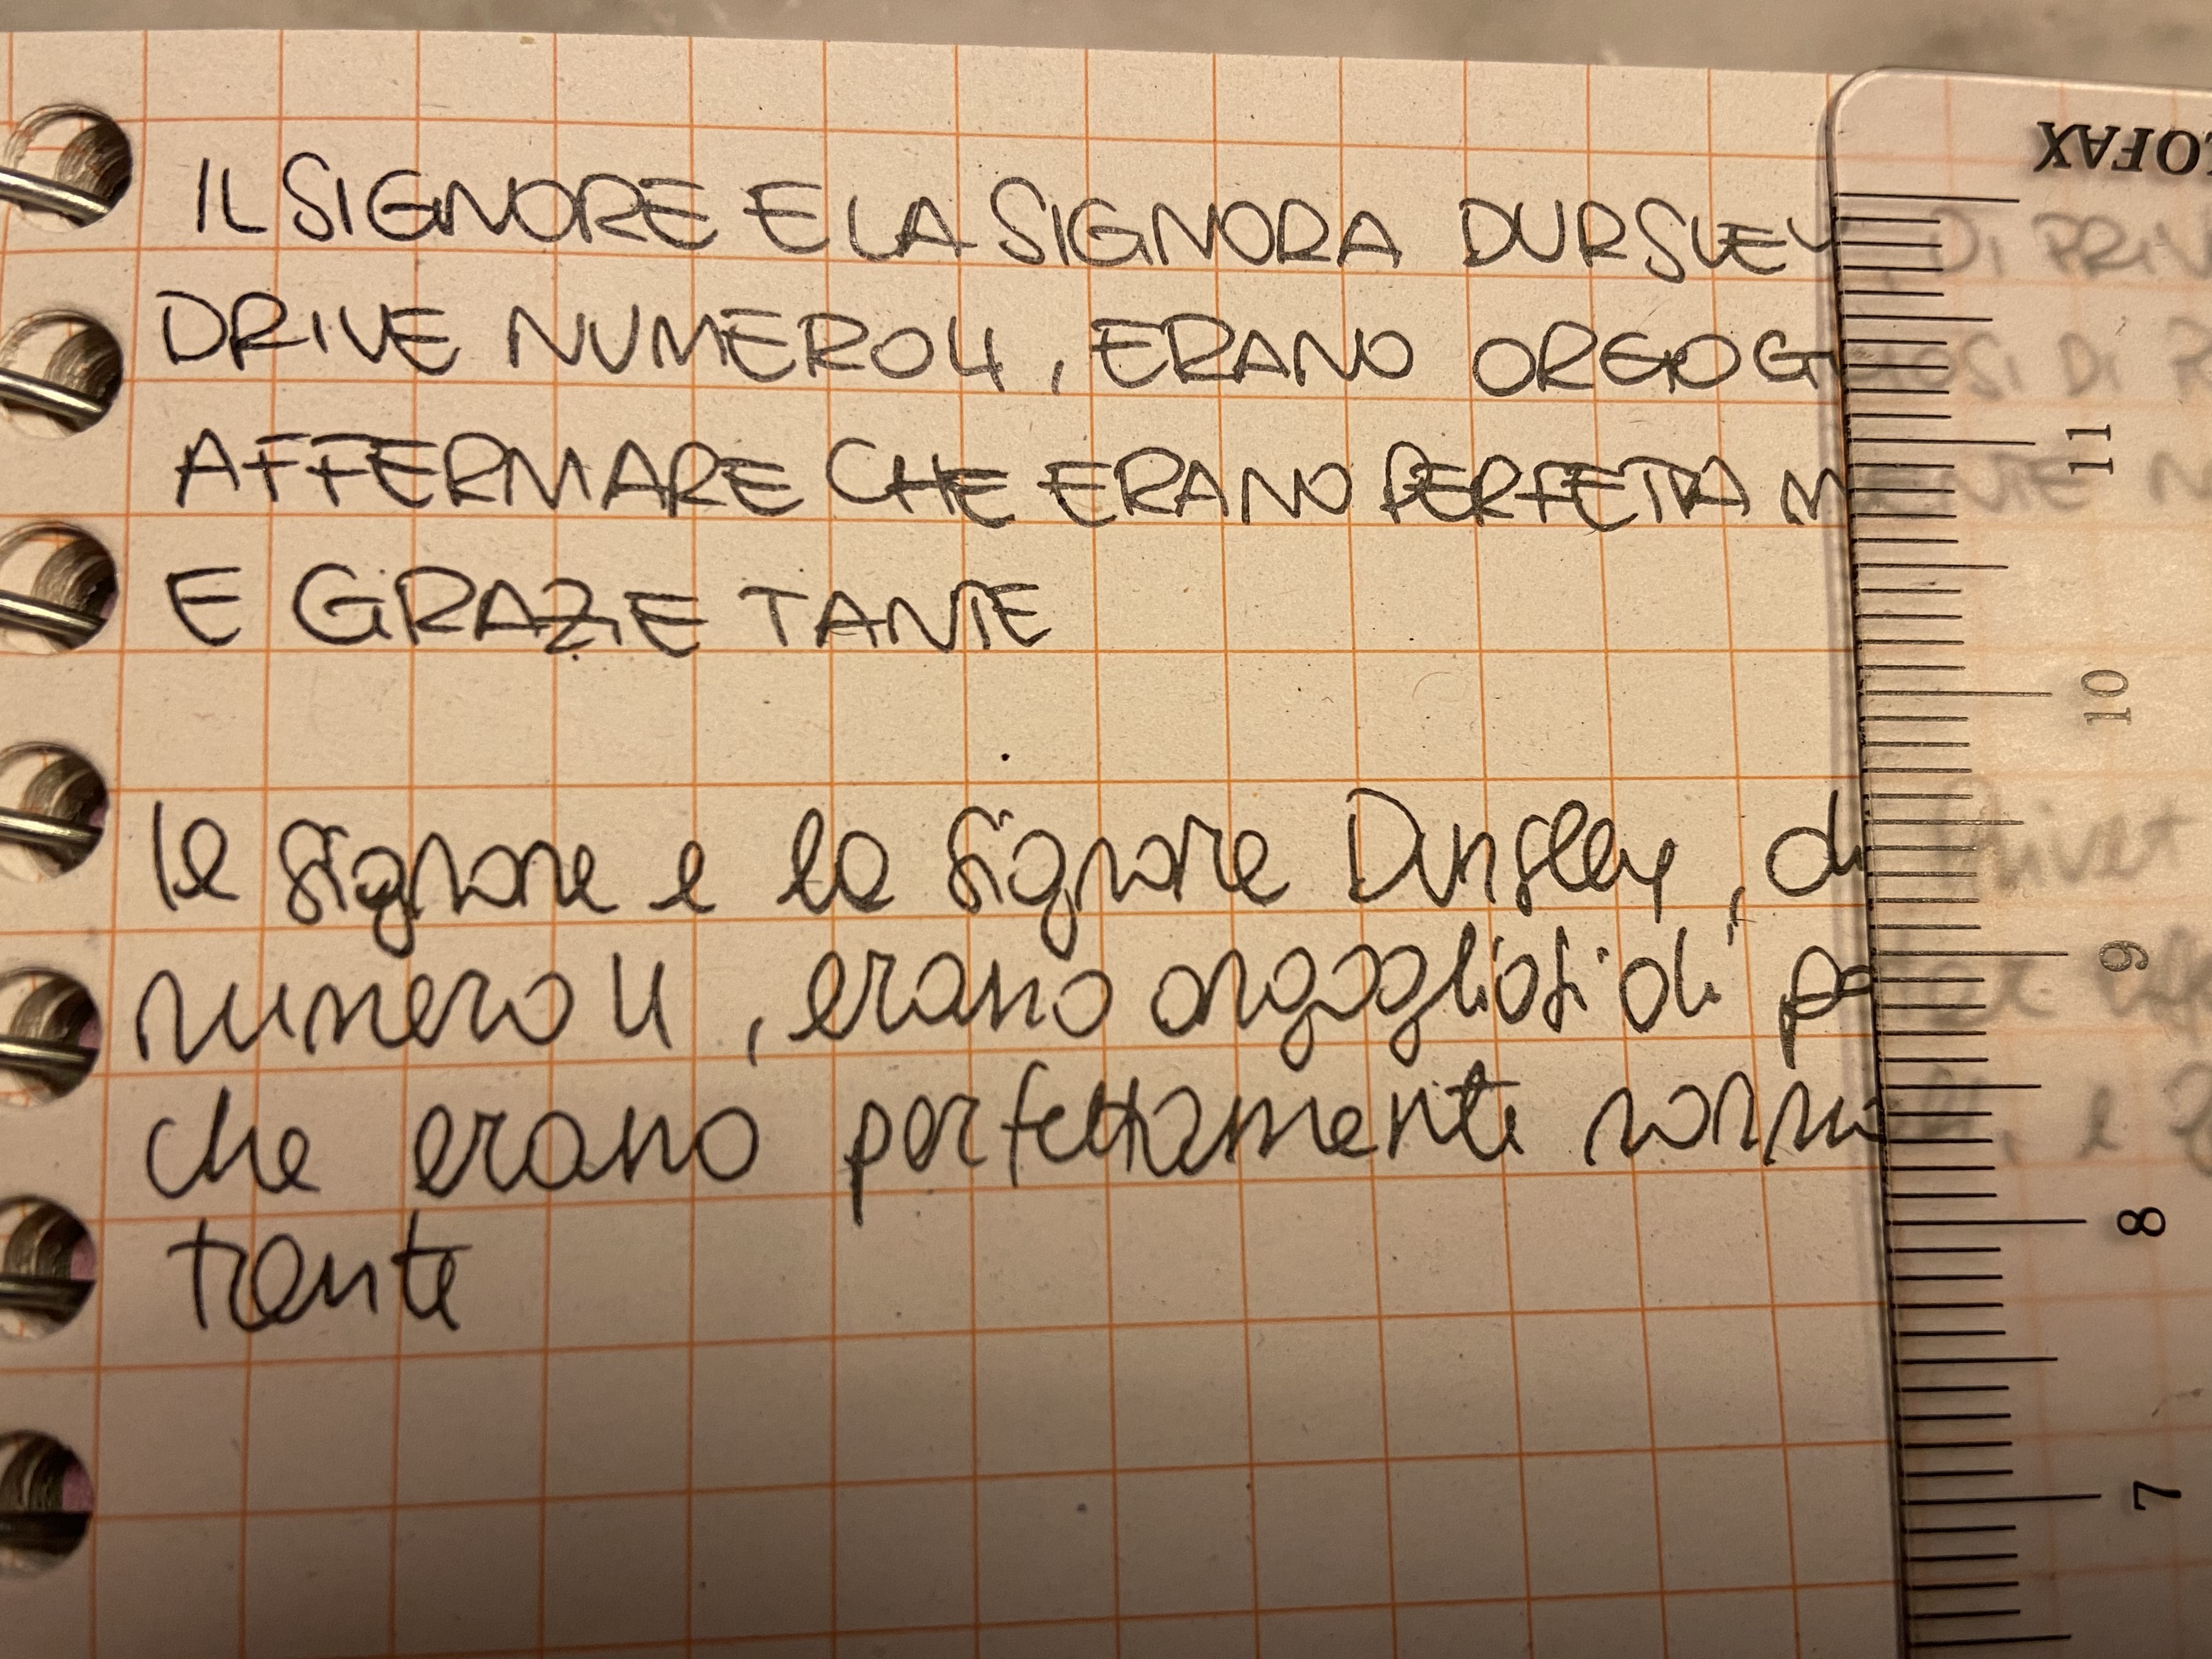 IL SIGNORE E LA SIGNORA DURSLEY, DI PRIV
DRIVE NUMERO 4, ERANO ORGOGLIOSI DI P
AFFERMARE CHE ERANO PERFETTAMENTE N
E GRAZIE TANTE
Il signore e la signora Dursley, di Privet
numero 4, erano orgogliosi di po
che erano perfettamente norma e
tante
OFAX
11
10
9
8
7